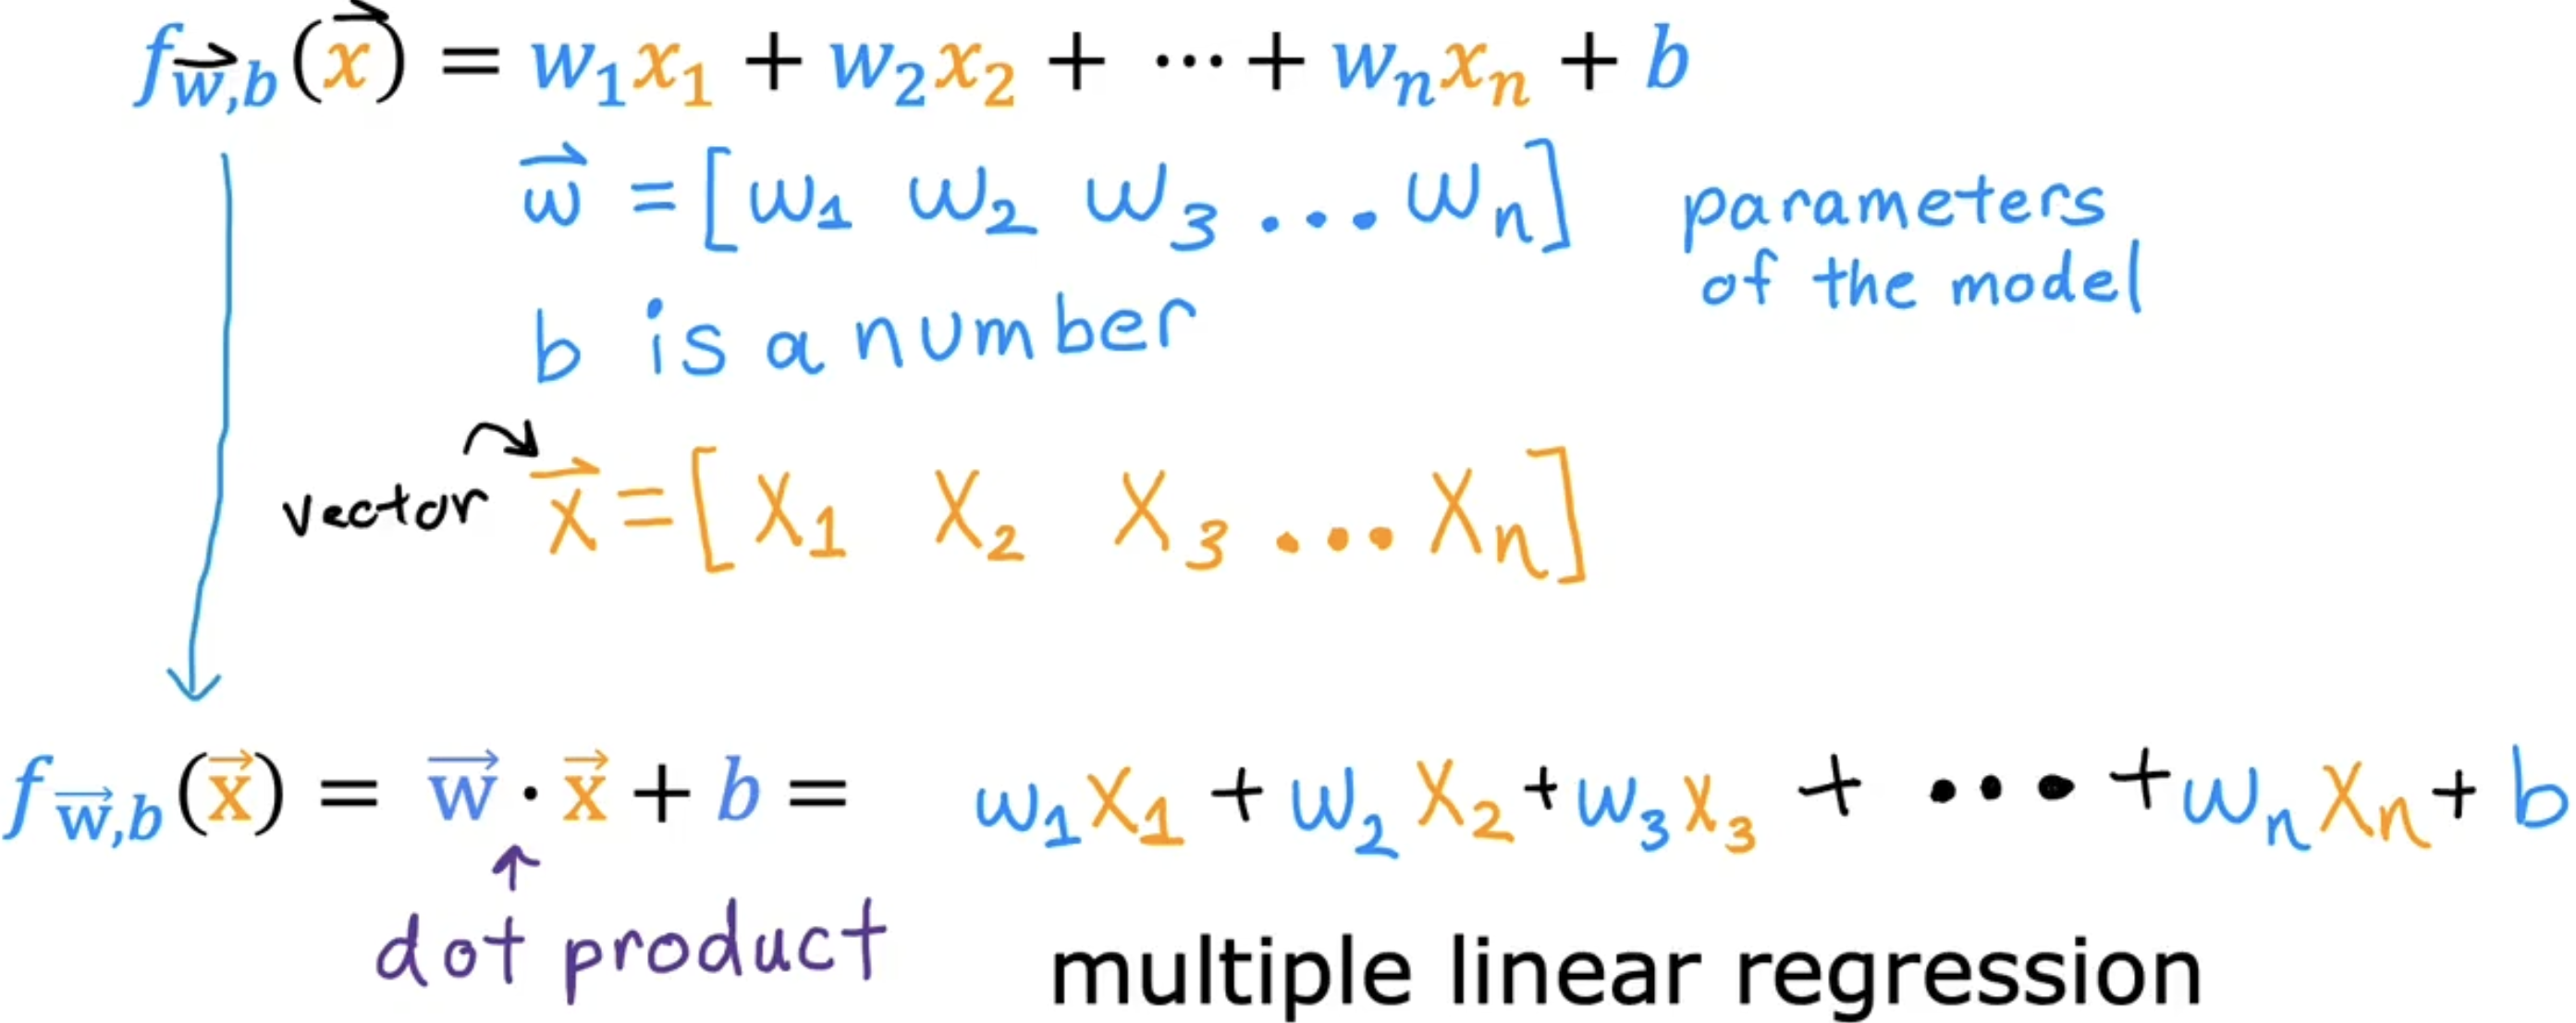 f_{\vec{w},b}(\vec{x}) = w_1x_1 + w_2x_2 + ⋯ + w_nx_n + b
\vec{w} = [w_1 w_2 w_3 ... w_n] parameters
of the model
b is a number
vector \vec{x} = [x_1 x_2 x_3 ... x_n]
f_{\vec{w},b}(\vec{x}) = \vec{w} · \vec{x} + b = w_1x_1 + w_2x_2 + w_3x_3 + ... + w_nx_n + b
dot product
multiple linear regression